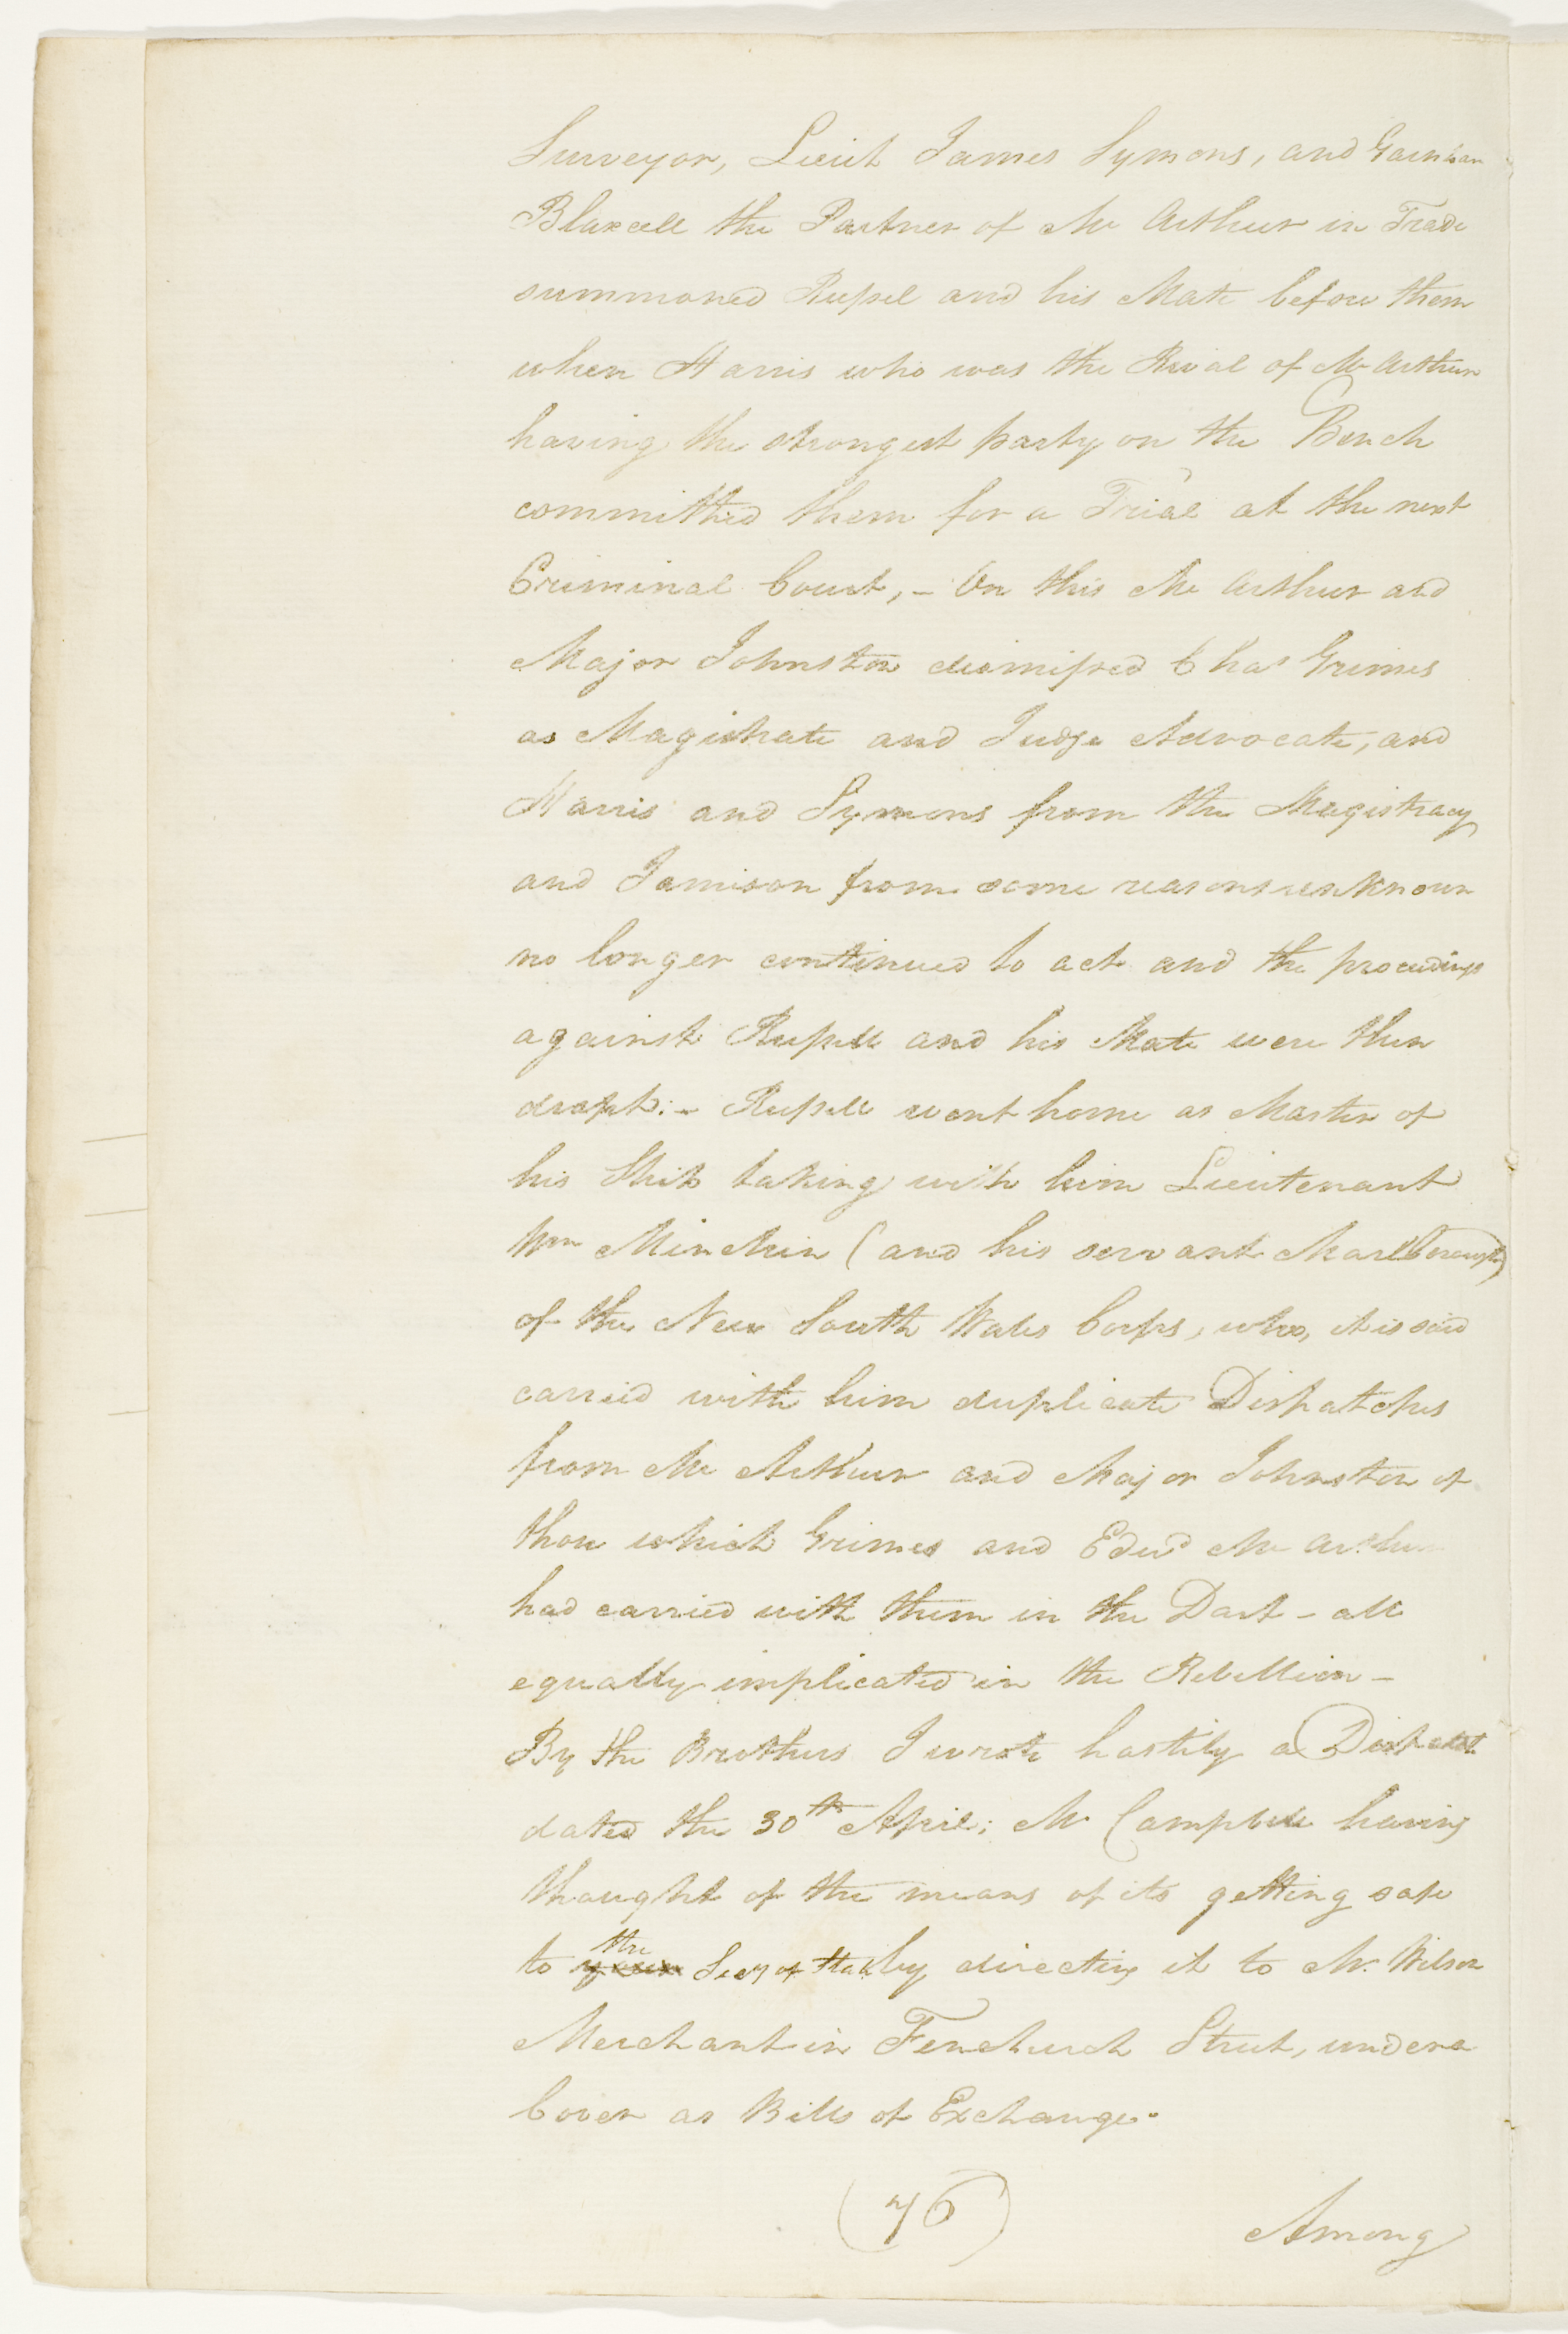 Surveyor, Lieut James Symons, and Garnham
Blaxcell the Partner of Mc Arthur in Trade
summoned Russel and his Mate before them
when Harris who was the Rival of McArthur
having the strongest party on the Bench
committed them for a Trial at the next
Criminal Court, – On this Mc Arthur and
Major Johnston dismissed Chas Grimes
as Magistrate and Judge Advocate, and
Harris and Symons from the Magistracy
and Jamison from some reasons unknown
no longer continued to act and the proceedings
against Russell and his Mate were then
dropt: – Russell went home as Master of
his Ship taking with him Lieutenant
Wm Minchin (and his servant Marlborough)
of the New South Wales Corps, who, it is said
carried with him duplicate Dispatches
from Mc Arthur and Major Johnston of
those which Grimes and Edwd Mc Arthur
had carried with them in the Dart – all
equally implicated in the Rebellion –
By the Brothers I wrote hastily a Dispatch
dated the 30th April; Mr Campbell having
thought of the means of its getting safe
to the Secy of State by directing it to Mr. Wilson
Merchant in Fenchurch Street, under a
Cover as Bills of Exchange.
(76)
Among